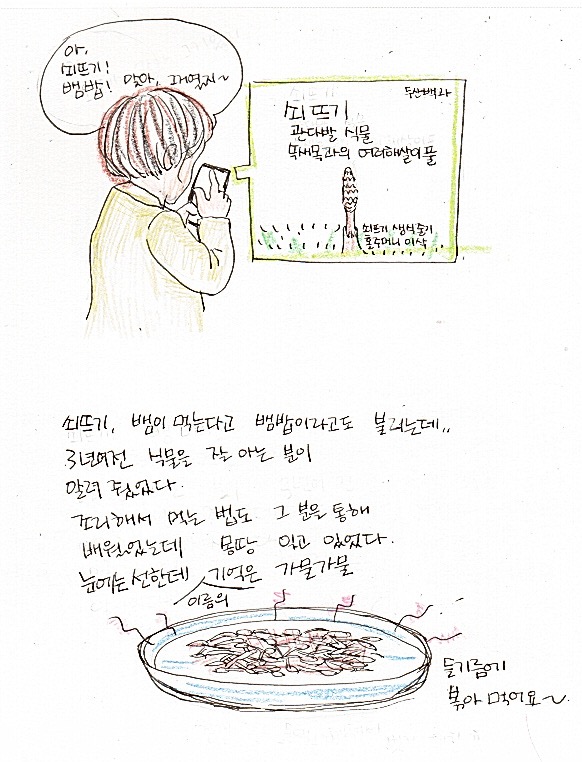 아,
쇠뜨기!
뱀밥! 맞아, 그거였지~
두산백과
쇠뜨기
관다발 식물
속새목과의 여러해살이풀
쇠뜨기 생식줄기
홀주머니 이삭
쇠뜨기, 뱀이 먹는다고 뱀밥이라고도 불리는데,,
3년여전 식물을 잘 아는 분이
알려 주셨었다.
조리해서 먹는 법도 그 분을 통해
배웠었는데 몽땅 잊고 있었다.
눈에는 선한데 기억은 가물가물
이름의
들기름에
볶아 먹어요~.